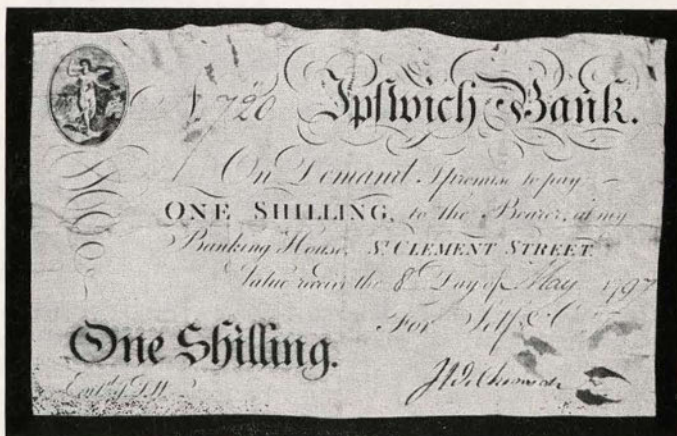 N. 720 Ipſwich Bank.
On Demand I promise to pay
ONE SHILLING, to the Bearer, at my
Banking House, St CLEMENT STREET.
Value receiv'd the 8 Day of May 1797
For Self & Co
One Shilling.
Entd